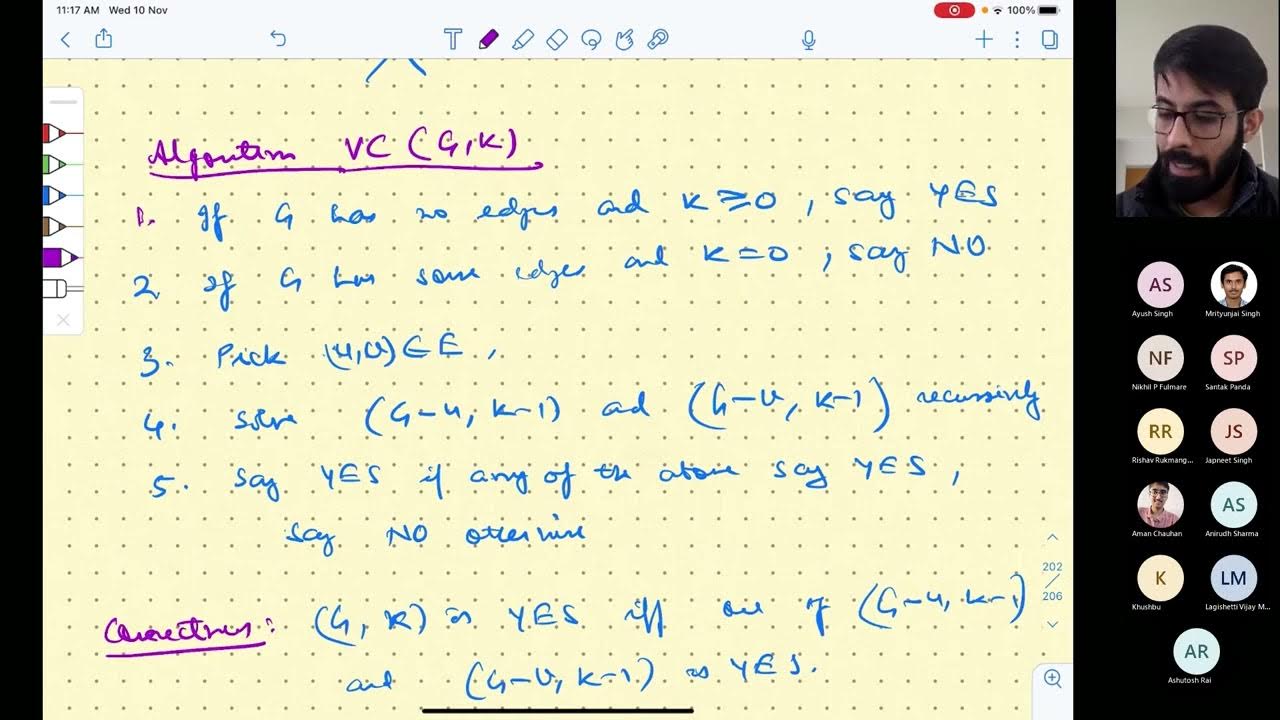 11:17 AM Wed 10 Nov
100%
Algorithm VC (G, K)
1. If G has no edges and K ≥ 0, say YES
2. If G has some edges and K = 0, say NO
3. Pick (u,v) ∈ E,
4. solve (G-u, k-1) and (G-v, k-1) recursively
5. Say YES if any of the above say YES,
say NO otherwise
Correctness: (G, K) is YES iff one of (G-u, k-1)
and (G-v, k-1) is YES.
202
/
206
AS
Ayush Singh
Mrityunjai Singh
NF
Nikhil P Fulmare
SP
Santak Panda
RR
Rishav Rukmang...
JS
Japneet Singh
Aman Chauhan
AS
Anirudh Sharma
K
Khushbu
LM
Lagishetti Vijay M...
AR
Ashutosh Rai